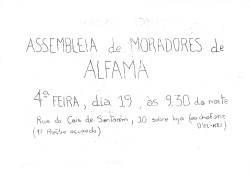 ASSEMBLEIA de MORADORES de
ALFAMA
4ª FEIRA, dia 19, às 9.30 da noite
Rua do Cais de Santarém, 10 sobre loja (ao chafariz
D'el-rei)
(1º Prédio ocupado)